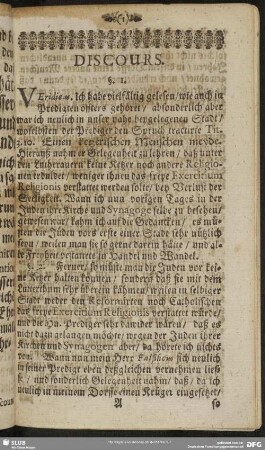 (1)
DISCOURS.
§. 1.
Veridicus. Ich habe vielfältig gelesen, wie auch in
Predigten öfters gehöret, absonderlich aber
war ich neulich in unser nahe hergelegenen Stadt,
woselbsten der Prediger den Spruch tractirte Tit.
3. 10. Einen ketzerischen Menschen meyde.
Hierauß nahm er Gelegenheit zu lehren, daß unter
den Lutheranern keine Ketzer noch andere Religio-
nen erduldet, weniger ihnen das freye Exercitium
Religionis verstattet werden solte, bey Verlust der
Seeligkeit. Wann ich nun vorigen Tages in der
Juden ihre Kirche und Synagoge selbe zu besehen,
gewesen war, kahm ich auf die Gedancken, es mü-
sten die Juden vors erste einer Stadt sehr nützlich
seyn, weilen man sie so gerne darein hätte, und al-
le Freyheit verstattete in Handel und Wandel.
§. 2. Ferner, so müste man die Juden vor kei-
ne Ketzer halten können, sondern daß sie mit dem
Lutherthum sehr überein kähmen, weilen in selbiger
Stadt weder den Reformirten noch Catholischen
das freye Exercitium Religionis verstattet würde,
und die Hn. Prediger sehr darwider wären, daß es
nicht dazu gelangen möchte, wegen der Juden ihrer
Kirchen und Synagogen aber, da hörete ich nichts
von. Wann nun mein Herr sich neulich
in seiner Predigt eben deßgleichen vernehmen ließ-
se, und sonderlich Gelegenheit nahm, daß, da ich
neulich in meinem Dorffe einen Krüger eingesetzet,
A
so
SLUB
DFG